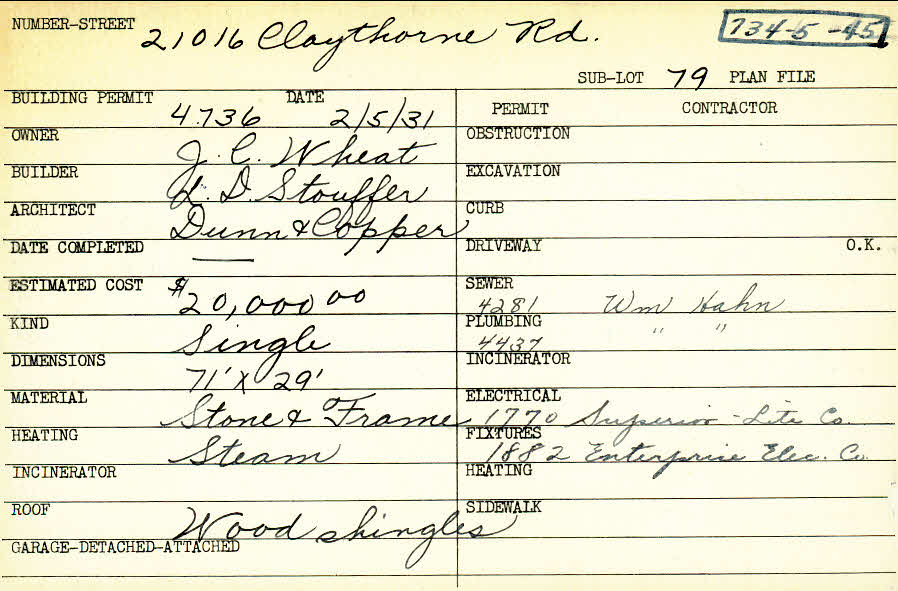 NUMBER-STREET 21016 Claythorne Rd. 734-5-45
SUB-LOT 79 PLAN FILE
BUILDING PERMIT 4736 DATE 2/5/31
OWNER J. C. Wheat
BUILDER L. D. Stouffer
ARCHITECT Dunn & Copper
DATE COMPLETED —
ESTIMATED COST $20,000 00
KIND Single
DIMENSIONS 71' X 29'
MATERIAL Stone & Frame
HEATING Steam
INCINERATOR
ROOF Wood shingles
GARAGE-DETACHED-ATTACHED
PERMIT CONTRACTOR
OBSTRUCTION
EXCAVATION
CURB
DRIVEWAY O.K.
SEWER 4281 Wm Hahn
PLUMBING 4437 " "
INCINERATOR
ELECTRICAL 1770 Superior-Lite Co.
FIXTURES 1882 Enterprise Elec. Co.
HEATING
SIDEWALK